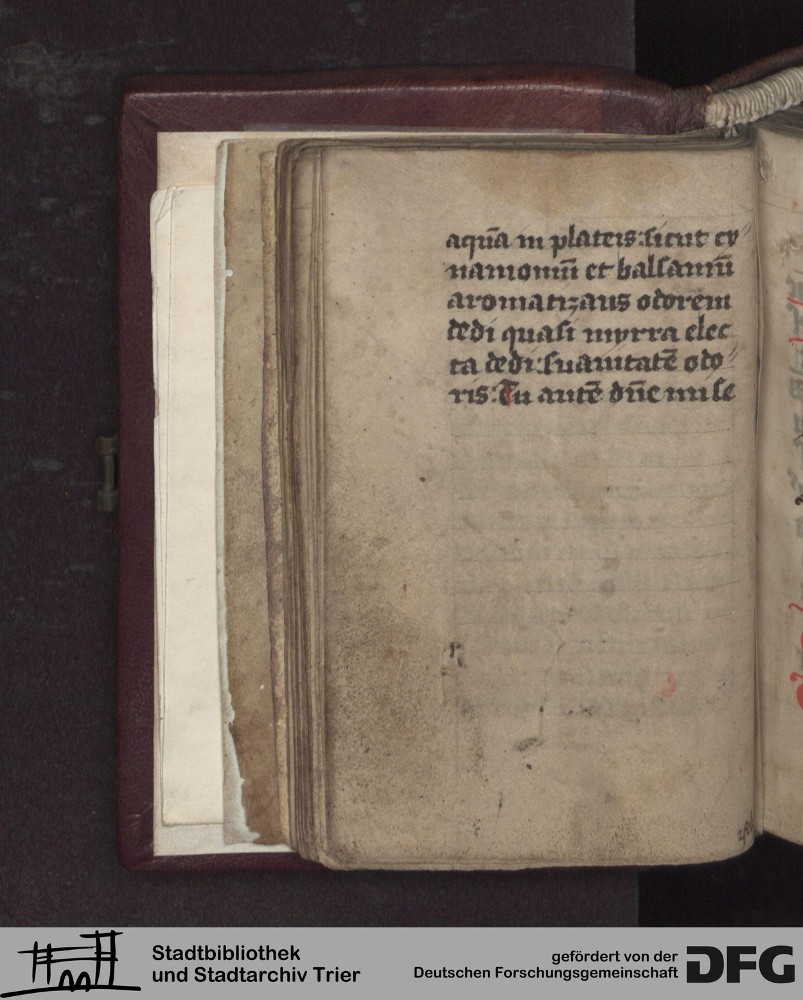 aquā in plateis: sicut cy〃
namomū et balsamū
aromatizans odorem
dedi quasi myrra elec
ta dedi: suauitatē odo〃
ris: Tu autē dn̄e mise
Stadtbibliothek
und Stadtarchiv Trier
gefördert von der
Deutschen Forschungsgemeinschaft
DFG